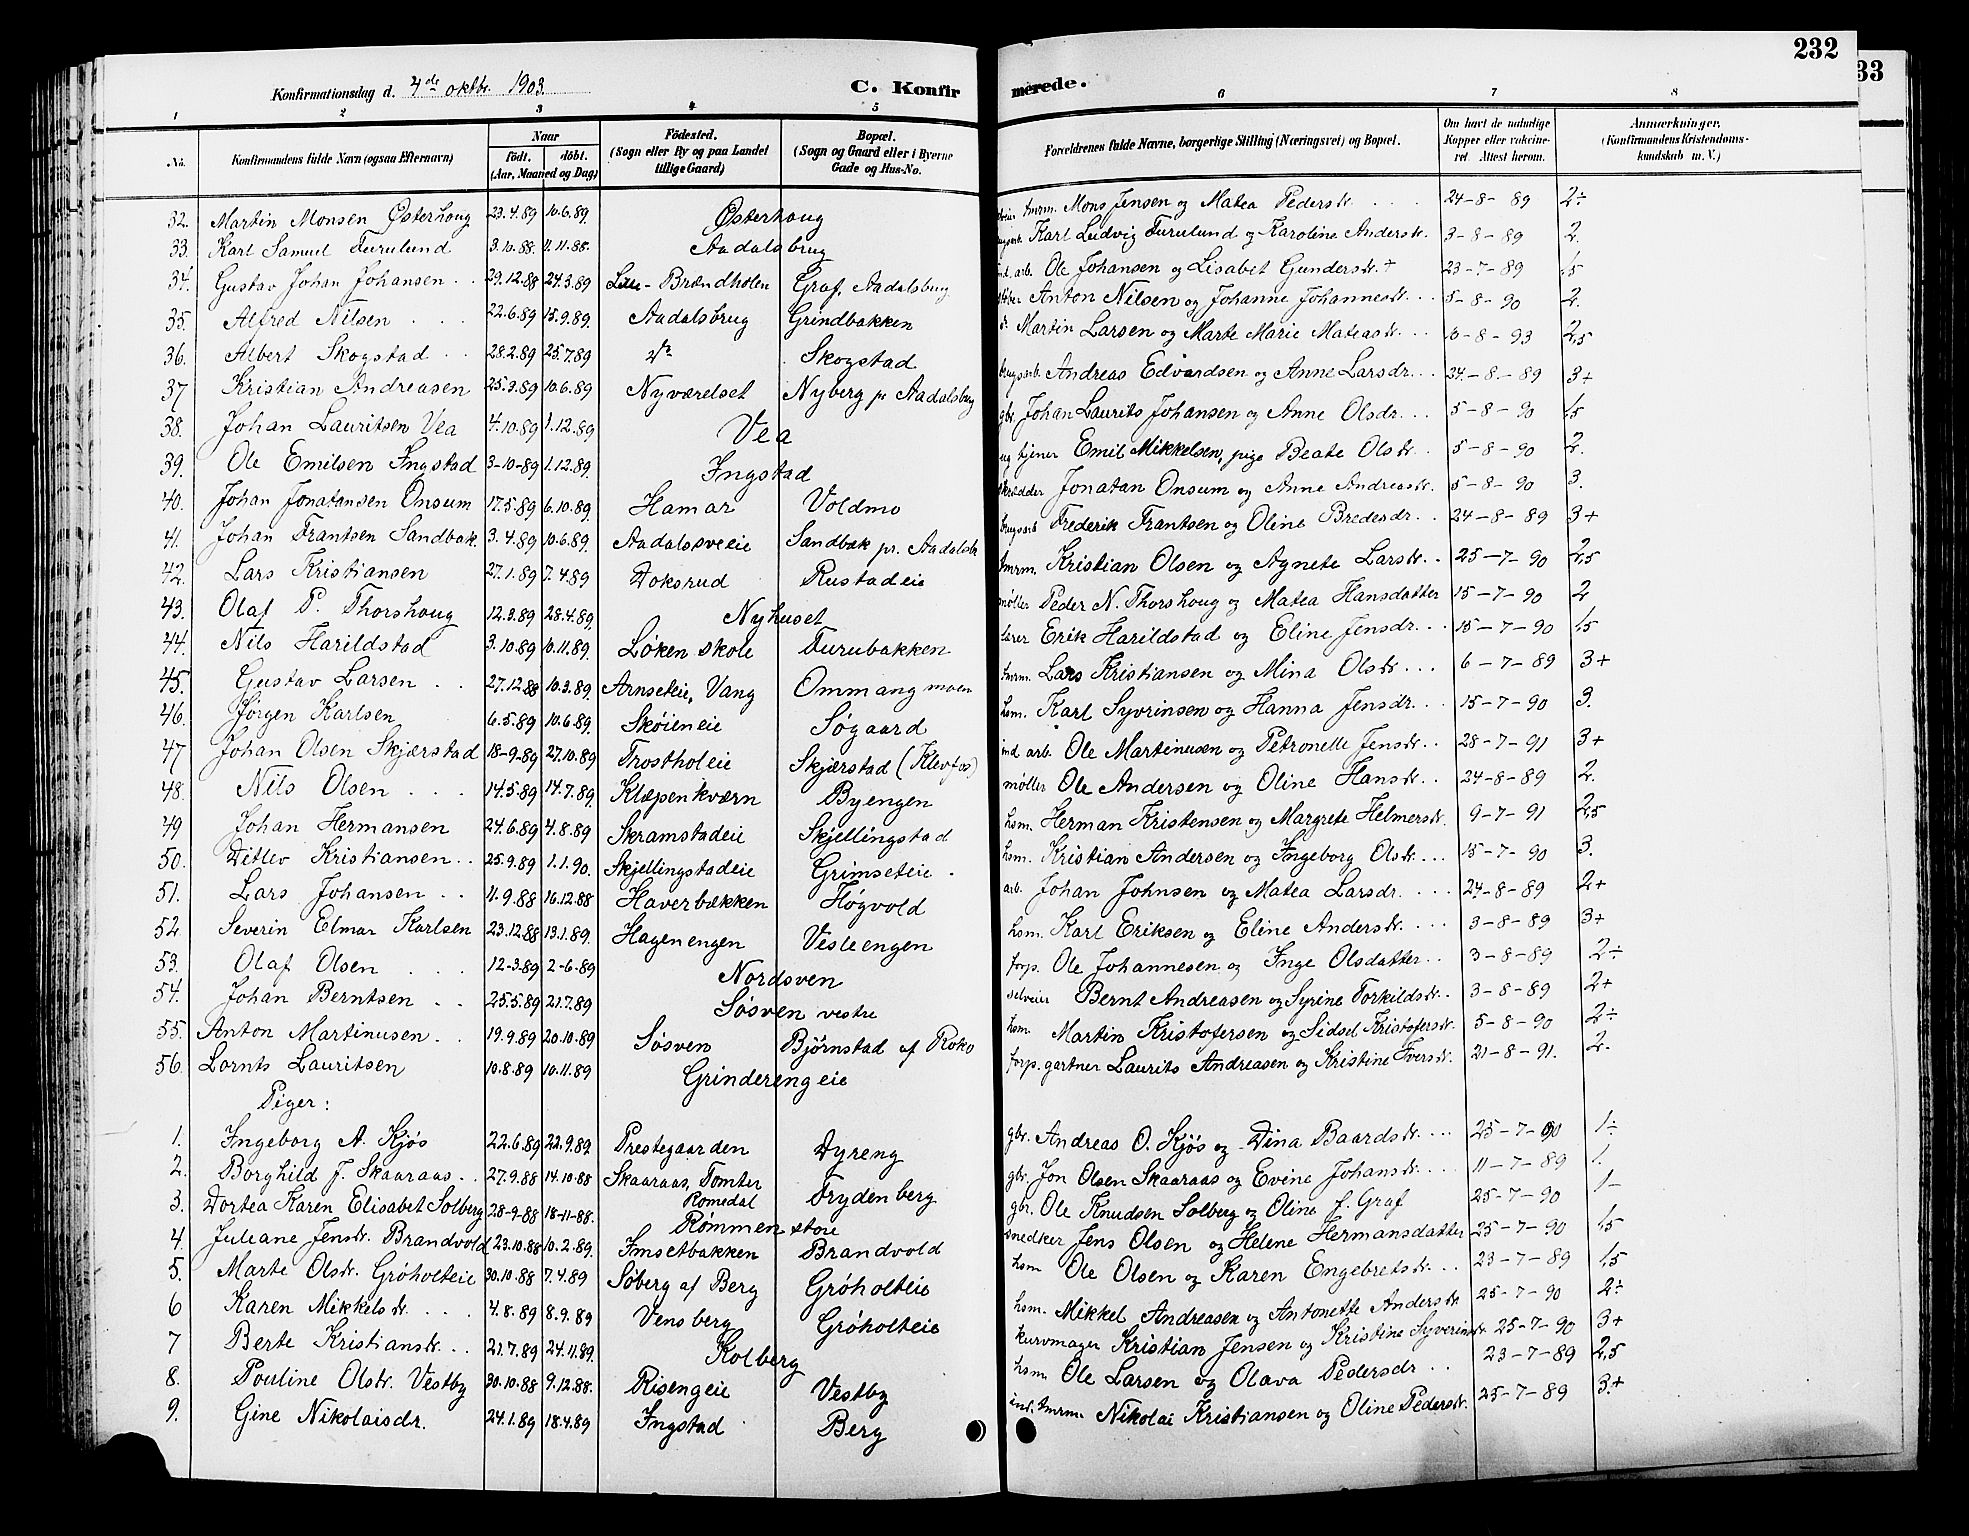 232
33
Konfirmationsdag d. 4de oktbr. 1903. C. Konfirmerede.
1 2 3 4 5 6 7 8
No. Konfirmandens fulde Navn (ogsaa Efternavn) Naar födt. döbt. (Aar, Maaned og Dag) Födested. (Sogn eller By og paa Landet tillige Gaard) Bopæl. (Sogn og Gaard eller i Byerne Gade og Hus-No. Forældrenes fulde Navne, borgerlige Stilling (Næringsvei) og Bopæl. Om havt de naturlige Kopper eller vakcineret. Attest herom. Anmærkninger. (Konfirmandens Kristendomskundskab m. V.)
32. Martin Monsen Østerhoug 23.4.89 10.6.89. Østerhoug tmrm. Mons Jensen og Matea Pedersdr. 24-8-89 2÷
33. Karl Samuel Furulund 3.10.88. 11.11.88. Aadalsbrug Karl Ludvig Furulund og Karoline Andersdr. 3-8-89 2.
34. Gustav Johan Johansen 29.12.88 24.3.89 Brændholen Graf, Aadalsbrug ind. arb. Ole Johansen og Lisabet Gundersdr. + 23-7-89 1,5
35. Alfred Nilsen 22.6.89 15.9.89. Aadalsbrug Grindbakken Anton Nilsen og Johanne Johannesdr. 5-8-90 2.
36. Albert Skogstad 28.2.89 25.7.89 do Skogstad Martin Larsen og Marte Marie Mateasdr. 10-8-93 2,5
37 Kristian Andreasen 25.3.89 10.6.89 Nyværelset Nyberg pr Aadalsbrug brugsarb. Andreas Edvardsen og Anne Larsdr. 24-8-89 3+
38. Johan Lauritsen Vea 4.10.89 1.12.89 Vea gbr. Johan Laurits Johansen og Anne Olsdr. 5-8-90 1,5
39. Ole Emilsen Ingstad 3-10-89 1.12.89. Ingstad ug tjener Emil Mikkelsen, pige Beate Olsdr. 5-8-90 2.
40. Johan Jonatansen Onsum 17.5.89 6.10.89. Hamar Voldmo skrædder Jonatan Onsum og Anne Andreasdr. 5-8-90 3.
41. Johan Frantsen Sandbak. 3.4.89 10.6.89 Aadalssveeie Sandbæk pr. Aadalsb. brugsarb Frederik Frantsen og Oline Bredesdr. 24-8-89 3+
42. Lars Kristiansen 27.1.89 7.4.89 Doksrud Rustadeie tmrm. Kristian Olsen og Agnete Larsdr. 25-7-90 2,5
43. Olaf P. Thorshoug 12.3.89 28.4.89. Nyhuset møller Peder N. Thorshoug og Matea Hansdatter 15-7-90 2
44. Nils Harildstad 3.10.89 10.11.89. Løken skole Furubakken lærer Erik Harildstad og Eline Jensdr. 15-7-90 1,5
45. Gustav Larsen 27.12.88 10.3.89. Arnseteie, Vang Ommangmoen tmrm. Lars Kristiansen og Mina Olsdr. 6-7-89 3+
46. Jørgen Karlsen 6.5.89 10.6.89. Skøieneie Søgaard hsm. Karl Syvrinsen og Hanna Jensdr. 15-7-90 3.
47 Johan Olsen Skjærstad 18-9-89 27.10.89 Trostholeie Skjærstad (Klevfos) ind arb. Ole Martinusen og Petronelle Jensdr. 28-7-91 3+
48. Nils Olsen 14.5.89 14.7.89. Klæpenkværn Byengen møller Ole Andersen og Oline Hansdr. 24-8-89 2.
49 Johan Hermansen 24.6.89 4.8.89 Skramstadeie Skjellingstad hsm. Herman Kristensen og Margrete Helmersdr. 9-7-91 2,5
50. Ditlev Kristiansen 25.9.89 1.1.90. Skjellingstadeie Grimseteie hsm. Kristian Andersen og Ingeborg Olsdr. 15-7-90 3.
51. Lars Johansen 11.9.88 16.12.88 Haverbækken Høgvold arb. Johan Johnsen og Matea Larsdr. 24-8-89 2+
52 Severin Elmar Karlsen 23.12.88 13.1.89. Hagenengen Vesleengen hsm. Karl Eriksen og Eline Andersdr. 3-8-89 3+
53. Olaf Olsen 12-3.89 2-6.89 Nordsven forp. Ole Johannesen og Inge Olsdatter 3-8-89 2÷
54. Johan Berntsen 25.5.89 21.7.89 Søsven vestre selveier Bernt Andreasen og Syrine Torkildsdr. 3-8-89 2+
55. Anton Martinusen 19.9.89 20.10.89 Søsven Bjørnstad af Roko hsm. Martin Kristofersen og Sidsel Kristofersdr. 5-8-90 2÷
56. Lornts Lauritsen 10.8.89 10.11.89 Grinderengeie forp. gartner Laurits Andreasen og Kristine Iversdr. 21-8-91. 2.
Piger:
1. Ingeborg A. Kjøs 22.6.89 22.9.89 Prestegaarden Dyreng gbr. Andreas O. Kjøs og Dina Baardsdr. 25-7-90 1÷
2. Borghild J. Skaaraas 27.9.88 14.10.88 Skaaraas, Tomter Romedal Frydenberg gbr. Jon Olsen Skaaraas og Evine Johansdr. 11-7-89 1.
3. Dortea Karen Elisabet Solberg 28-9-88 18-11-88. Rømmen store gbr. Ole Knudsen Solberg og Oline f. Graf 25-7-90 1-
4. Juliane Jensdr. Brandvold 23.10.88 10.2.89. Imsetbakken Brandvold snedker Jens Olsen og Helene Hermansdatter 25-7-90 1,5
5. Marte Olsdr. Gröholteie 30.10.88 7.4.89 Söberg af Berg Gröholteie hsm Ole Olsen og Karen Engebretsdr. 23-7-89 1,5
6 Karen Mikkelsdr. 4.8.89 8.9.89 Vensberg Gröholteie hsm. Mikkel Andreasen og Antonette Andersdr. 25-7-90 2÷
7 Berte Kristiansdr. 21.7.89 24.11.89. Kolberg kurvmager Kristian Jensen og Kristine Syverinsdr. 25-7-90 3+
8. Pouline Olsdr. Vestby 30.10.88 9.12.88. Risengeie Vestby hsm. Ole Larsen og Olava Pedersdr 23-7-89 2,5
9. Gine Nikolaisdr. 24.1.89 18.4.89 Ingstad Berg ind. tmrm. Nikolai Kristiansen og Oline Pedersdr. 25-7-89 3.+